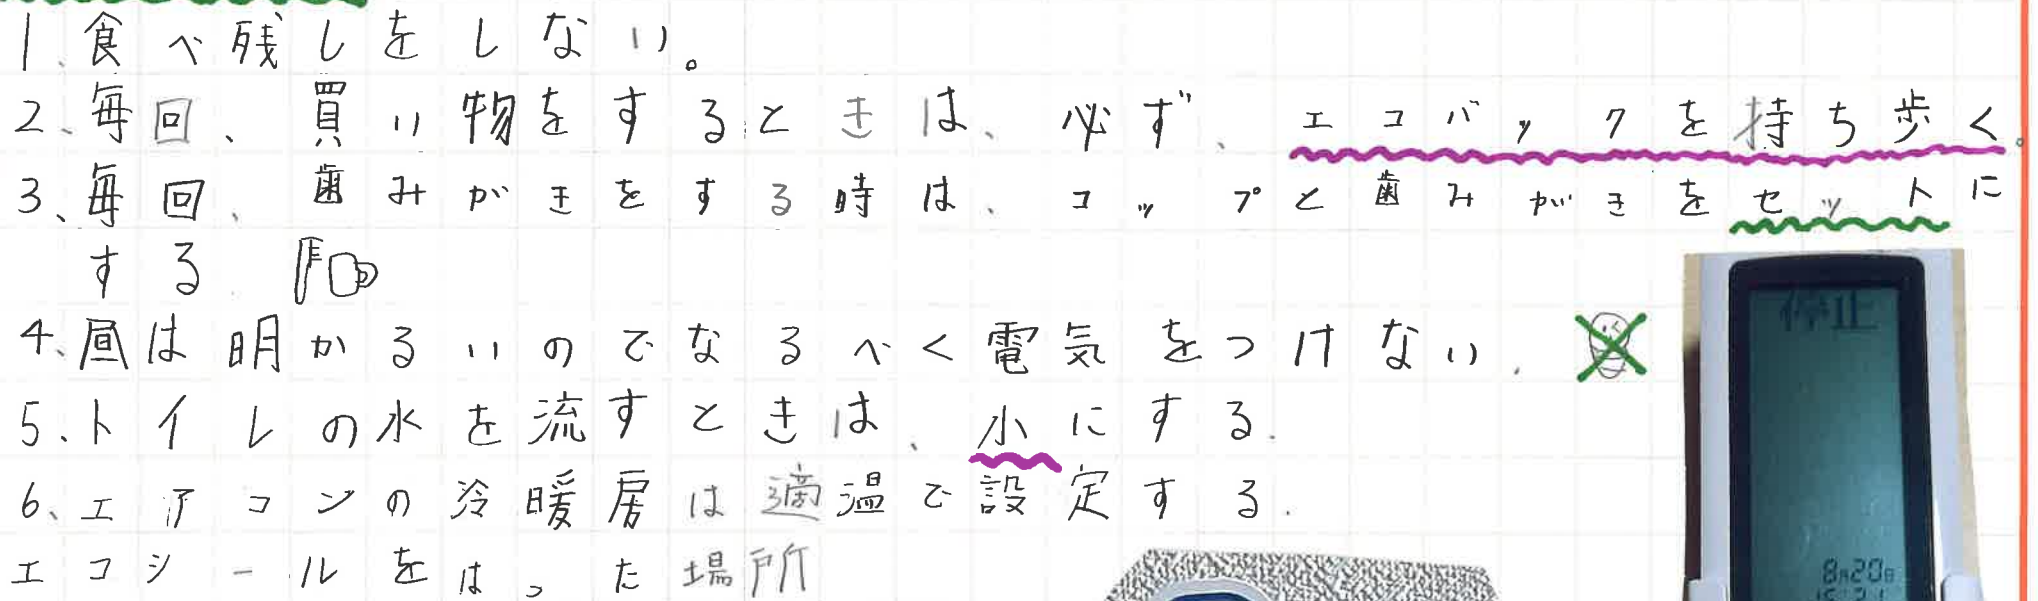 1、食べ残しをしない。
2、毎回、買い物をするときは、必ず、エコバックを持ち歩く。
3、毎回、歯みがきをする時は、コップと歯みがきをセットに
する。
4、昼は明かるいのでなるべく電気をつけない。
5、トイレの水を流すときは、小にする。
6、エアコンの冷暖房は適温で設定する。
エコシールをはった場所
停止
8月20日